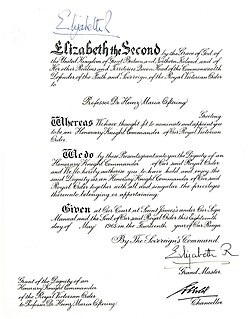 Elizabeth R
Elizabeth the Second by the Grace of God of
the United Kingdom of Great Britain and Northern Ireland and of
Her other Realms and Territories Queen, Head of the Commonwealth,
Defender of the Faith and Sovereign of the Royal Victorian Order
to
Professor Dr Heinz Maria
Greeting
Whereas We have thought fit to nominate and appoint you
to be an Honorary Knight Commander of Our Royal Victorian
Order.
We do by these Presents grant unto you the Dignity of an
Honorary Knight Commander of Our said Royal Order
and We do hereby authorise you to have hold and enjoy the
said Dignity as an Honorary Knight Commander of Our said
Royal Order together with all and singular the privileges
thereunto belonging or appertaining.
Given at Our Court at Saint James's under Our Sign
Manual and the Seal of Our said Royal Order this Eighteenth
day of May 1965 in the Fourteenth year of Our Reign
By The Sovereign's Command.
Elizabeth R
Grand Master.
Grant of the Dignity of an
Honorary Knight Commander
of the Royal Victorian Order
to Professor Dr Heinz Maria
Chancellor